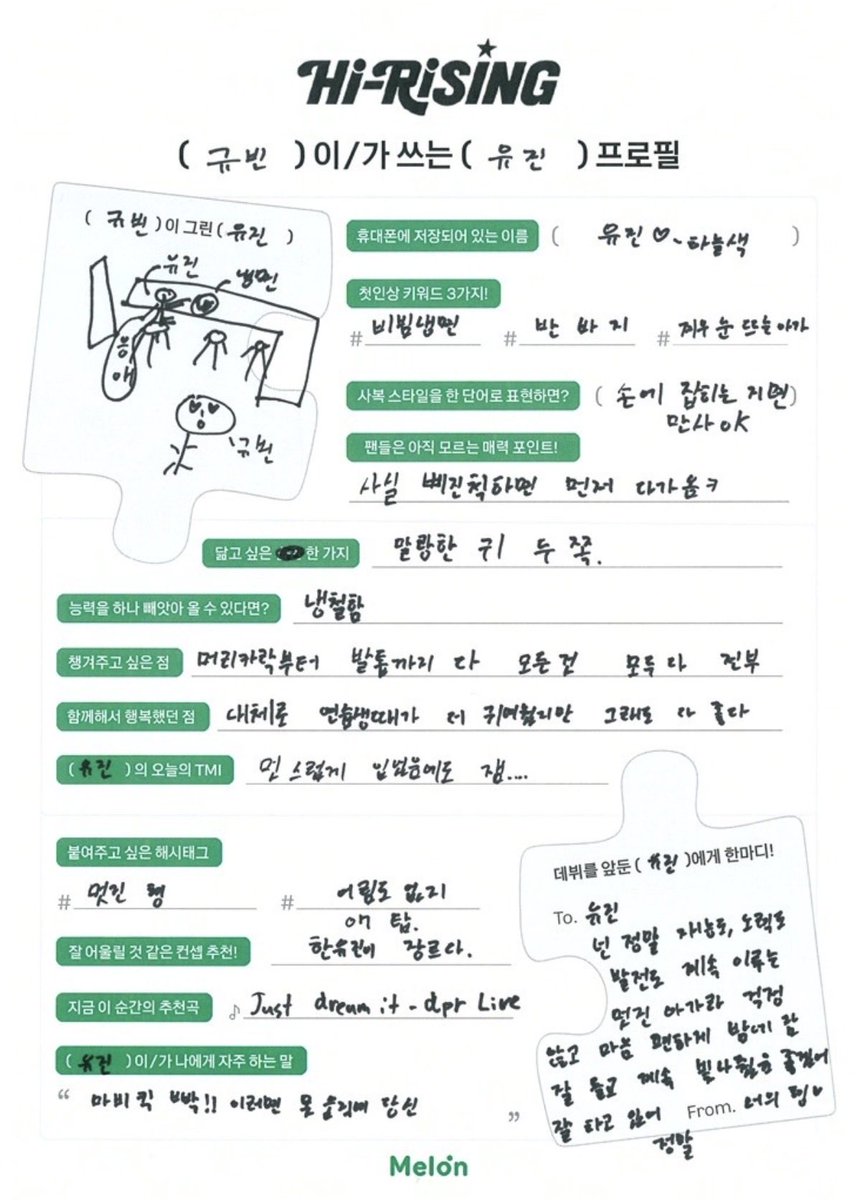 Hi-RiSING
( 규빈 ) 이/가 쓰는 ( 유진 ) 프로필
( 규빈 ) 이 그린 ( 유진 )
유진
냉면
규빈
휴대폰에 저장되어 있는 이름 ( 유진♡~하늘색 )
첫인상 키워드 3가지!
# 비빔냉면 # 반바지 # 겨우 눈 뜨는 아가
사복 스타일을 한 단어로 표현하면? ( 손에 잡히는 거면 )
만사 OK
팬들은 아직 모르는 매력 포인트!
사실 삐진척하면 먼저 다가옴ㅋ
닮고 싶은 한 가지 말랑한 귀 두 쪽.
능력을 하나 빼앗아 올 수 있다면? 냉철함
챙겨주고 싶은 점 머리카락부터 발톱까지 다 모든 것 모두 다 전부
함께해서 행복했던 점 대체로 연습생때가 더 귀여웠지만 그래도 다 좋다
( 유진 )의 오늘의 TMI 먼스럽게 입벌음에도 잼....
붙여주고 싶은 해시태그
# 멋진 형 # 어림도 없지
애 탑.
잘 어울릴 것 같은 컨셉 추천! 한유진이 장르다.
지금 이 순간의 추천곡 ♪ Just dream it - dpr Live
( 유진 )이/가 나에게 자주 하는 말
“ 마비킥 빡!! 이러면 못 움직여 당신 ”
데뷔를 앞둔 ( 유진 )에게 한마디!
To. 유진
넌 정말 재능도, 노력도
발전도 계속 이루는
멋진 아가라 걱정
않고 마음 편하게 밤에 잠
잘 들고 계속 빛나줬음 좋겠어
잘 하고 있어 From. 너의 형♡
정말
Melon